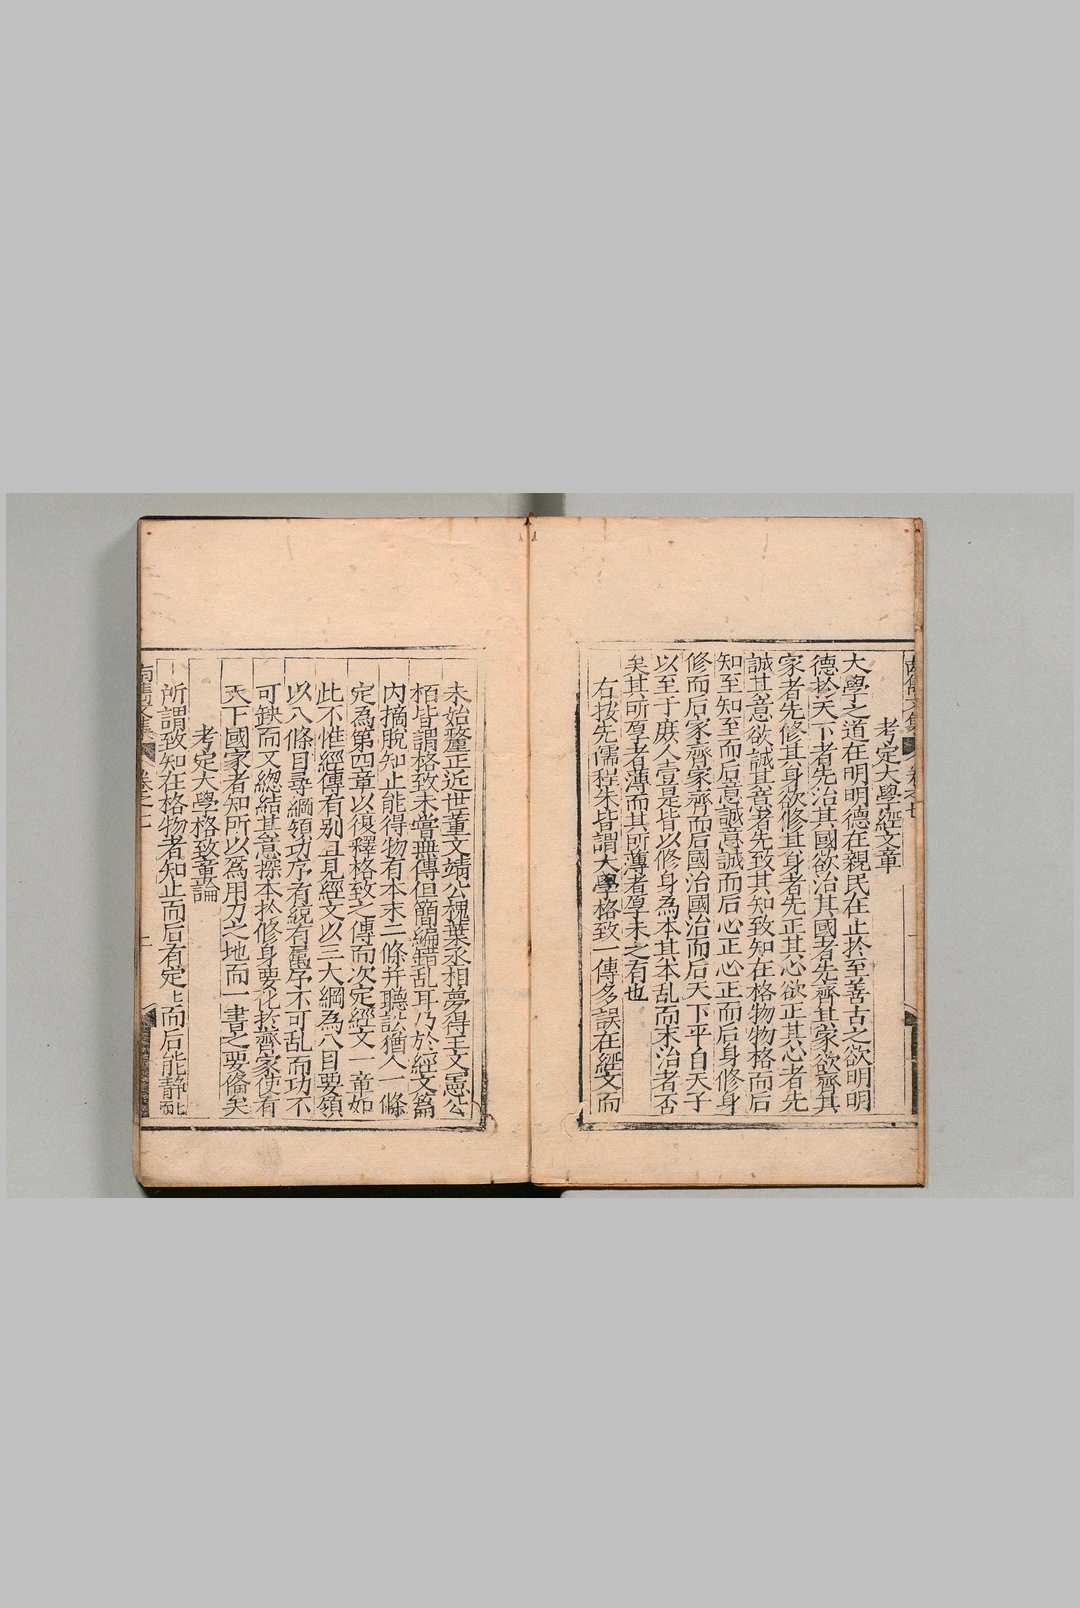 考定大學經文章
大學之道在明明德在親民在止於至善古之欲明明
德於天下者先治其國欲治其國者先齊其家欲齊其
家者先修其身欲修其身者先正其心欲正其心者先
誠其意欲誠其意者先致其知致知在格物物格而后
知至知至而后意誠意誠而后心正心正而后身修身
修而后家齊家齊而后國治國治而后天下平自天子
以至于庶人壹是皆以修身為本其本乱而末治者否
矣其所厚者薄而其所薄者厚未之有也
右按先儒程朱皆謂大學格致一傳多誤在經文而
未始釐正近世董文靖公槐葉丞相夢得王文憲公
栢皆謂格致未嘗無傳但簡編錯乱耳乃於經文篇
内摘脫知止能得物有本末二條并聽訟猶人一條
定為第四章以復釋格致之傳而次定經文一章如
此不惟經傳有别且見經文以三大綱為八目要領
以八條目尋綱領功序有統有屬序不可乱而功不
可缺而又緫結其意㨿本於修身要化於齊家使有
天下國家者知所以為用力之地而一書之要俻矣
考定大學格致章論
所謂致知在格物者知止而后有定止而后能静
南雋文集
卷之七